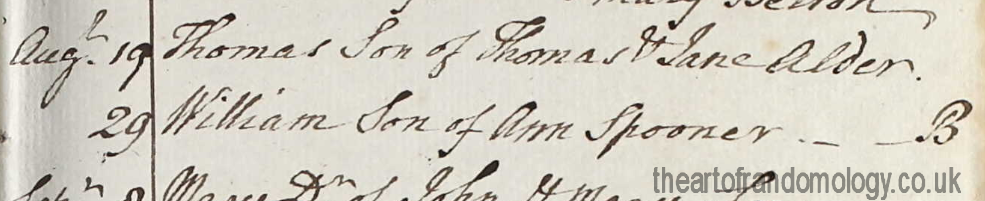 Mary Belton
Augst. 19 Thomas Son of Thomas & Jane Alder.
29 William Son of Ann Spooner - - B
8 Mary Dr. of John & Mary
theartofrandomology.co.uk